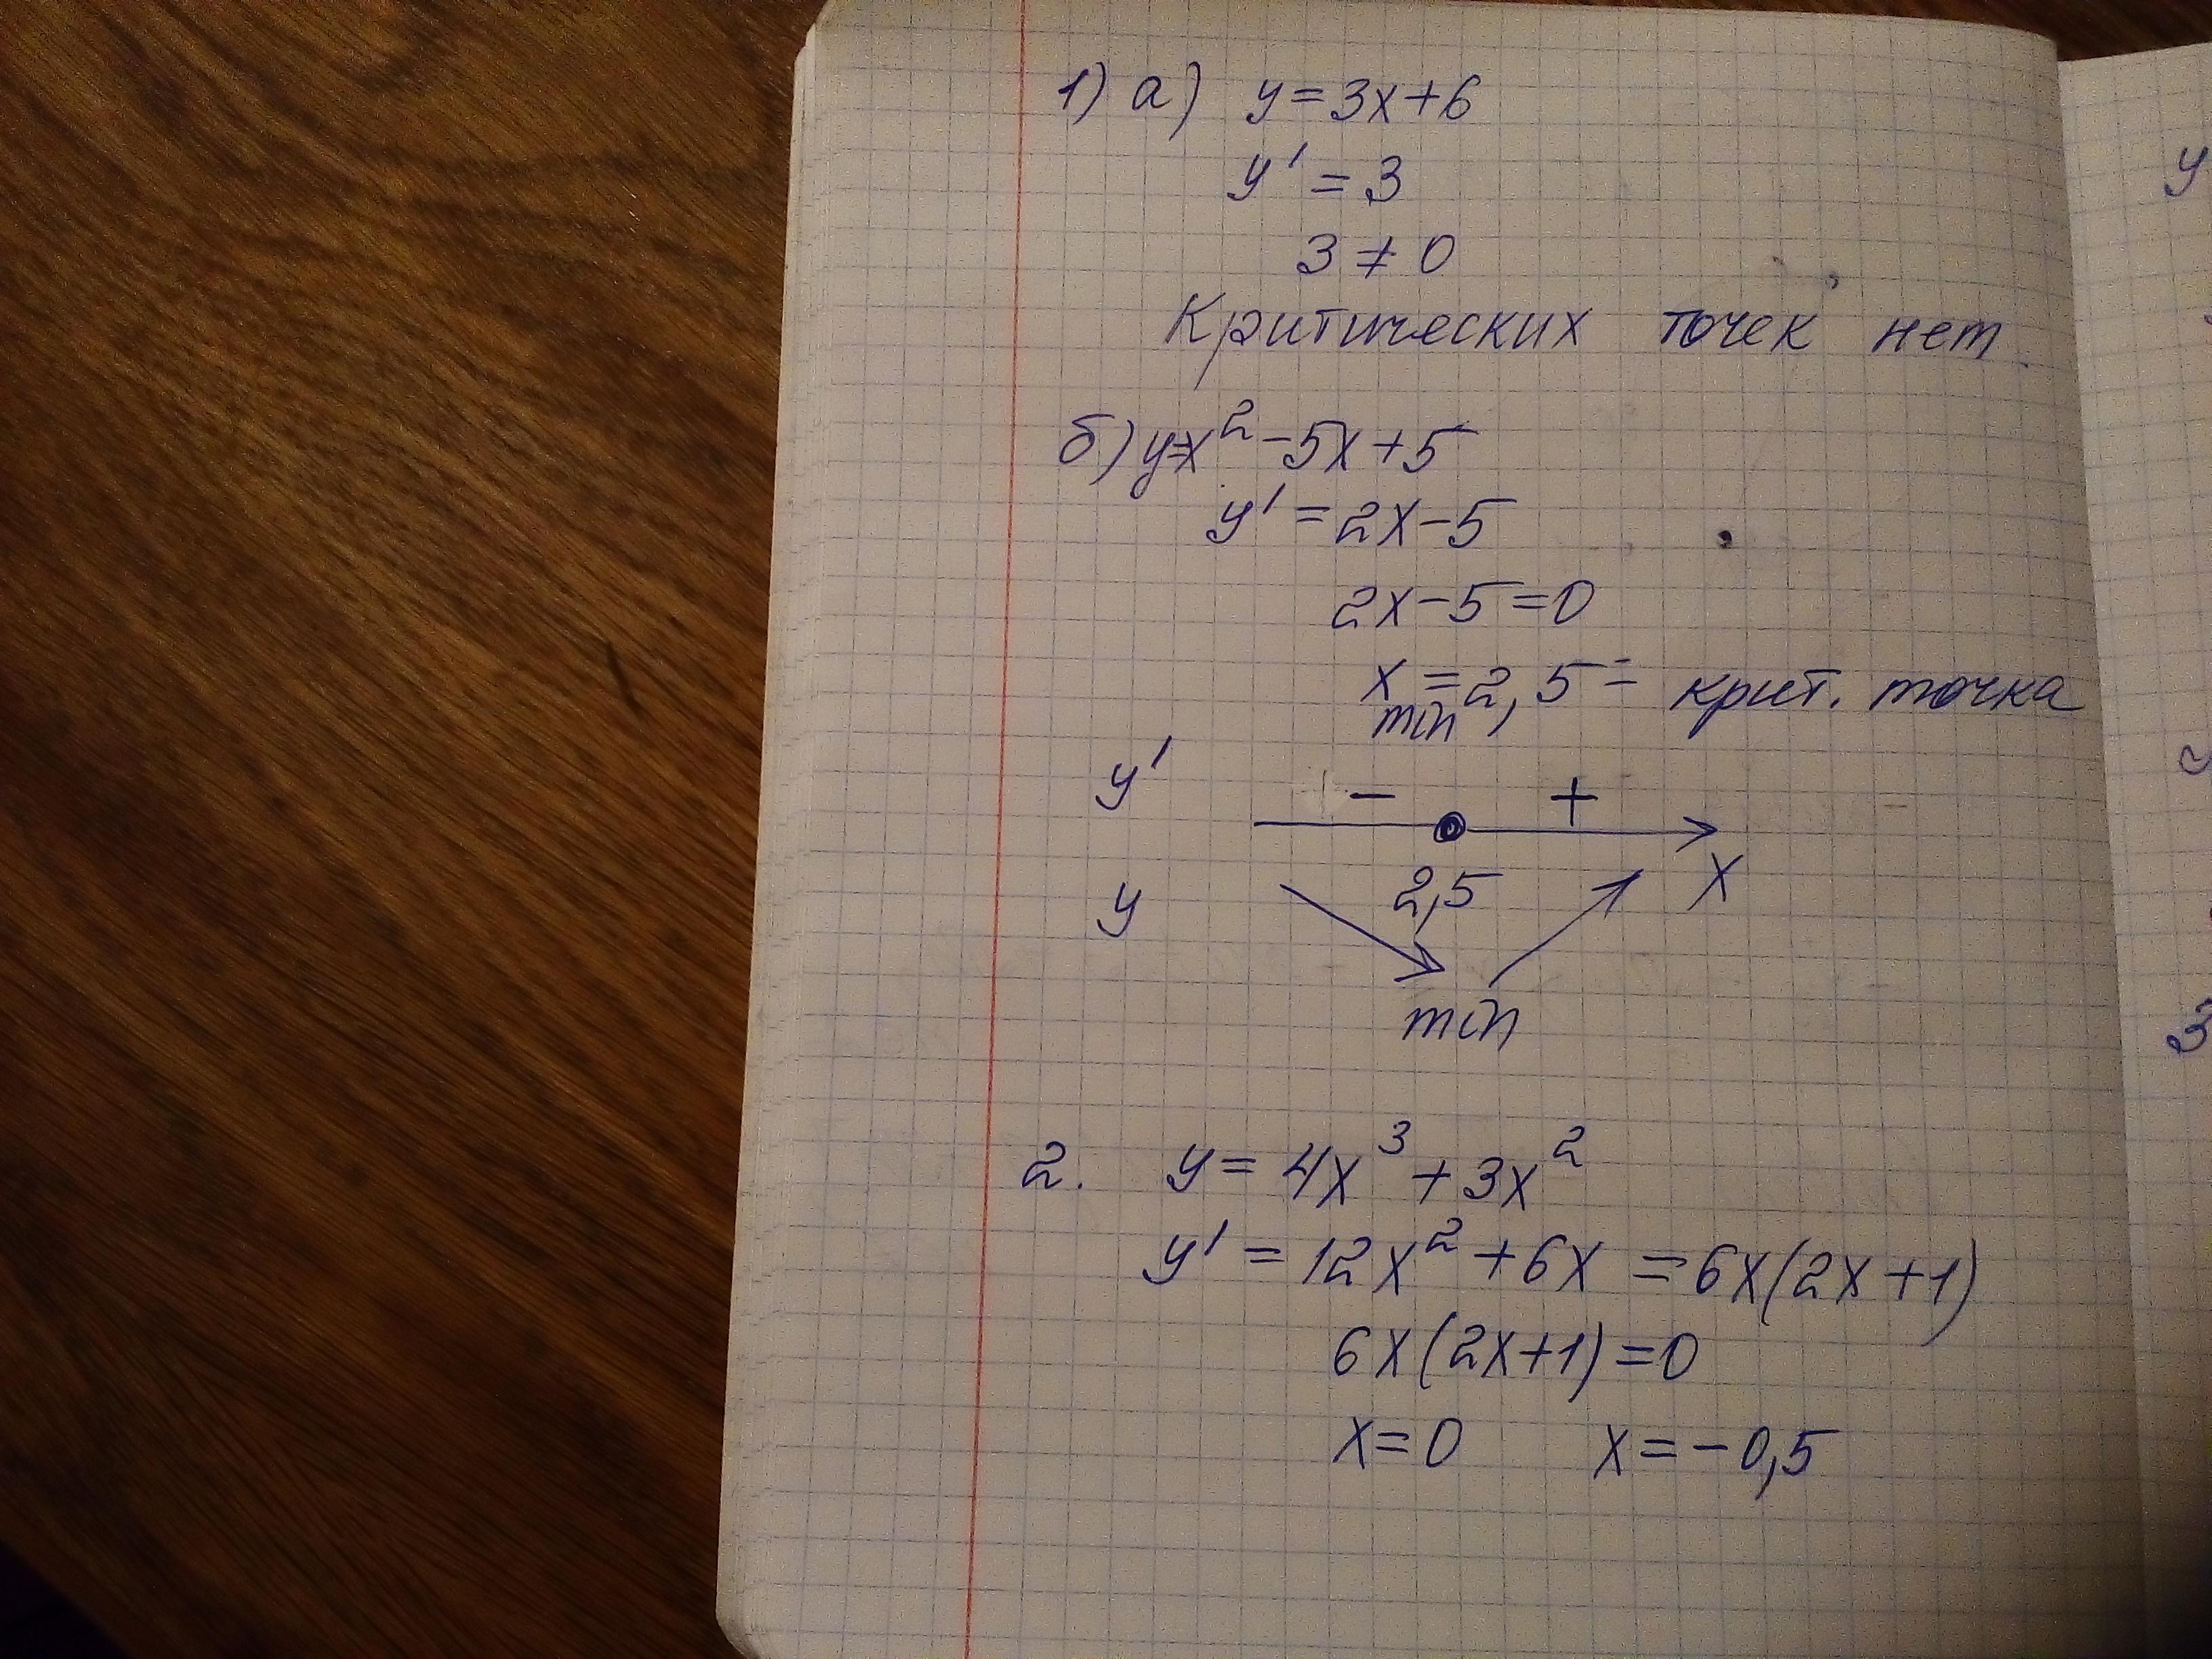 1) а) y = 3x + 6
y' = 3
3 ≠ 0
Критических точек нет
б) y = x² - 5x + 5
y' = 2x - 5
2x - 5 = 0
x min = 2,5 - крит. точка
y' - +
2,5 x
y
min
2. y = 4x³ + 3x²
y' = 12x² + 6x = 6x(2x + 1)
6x(2x+1) = 0
x = 0 x = -0,5
y
3